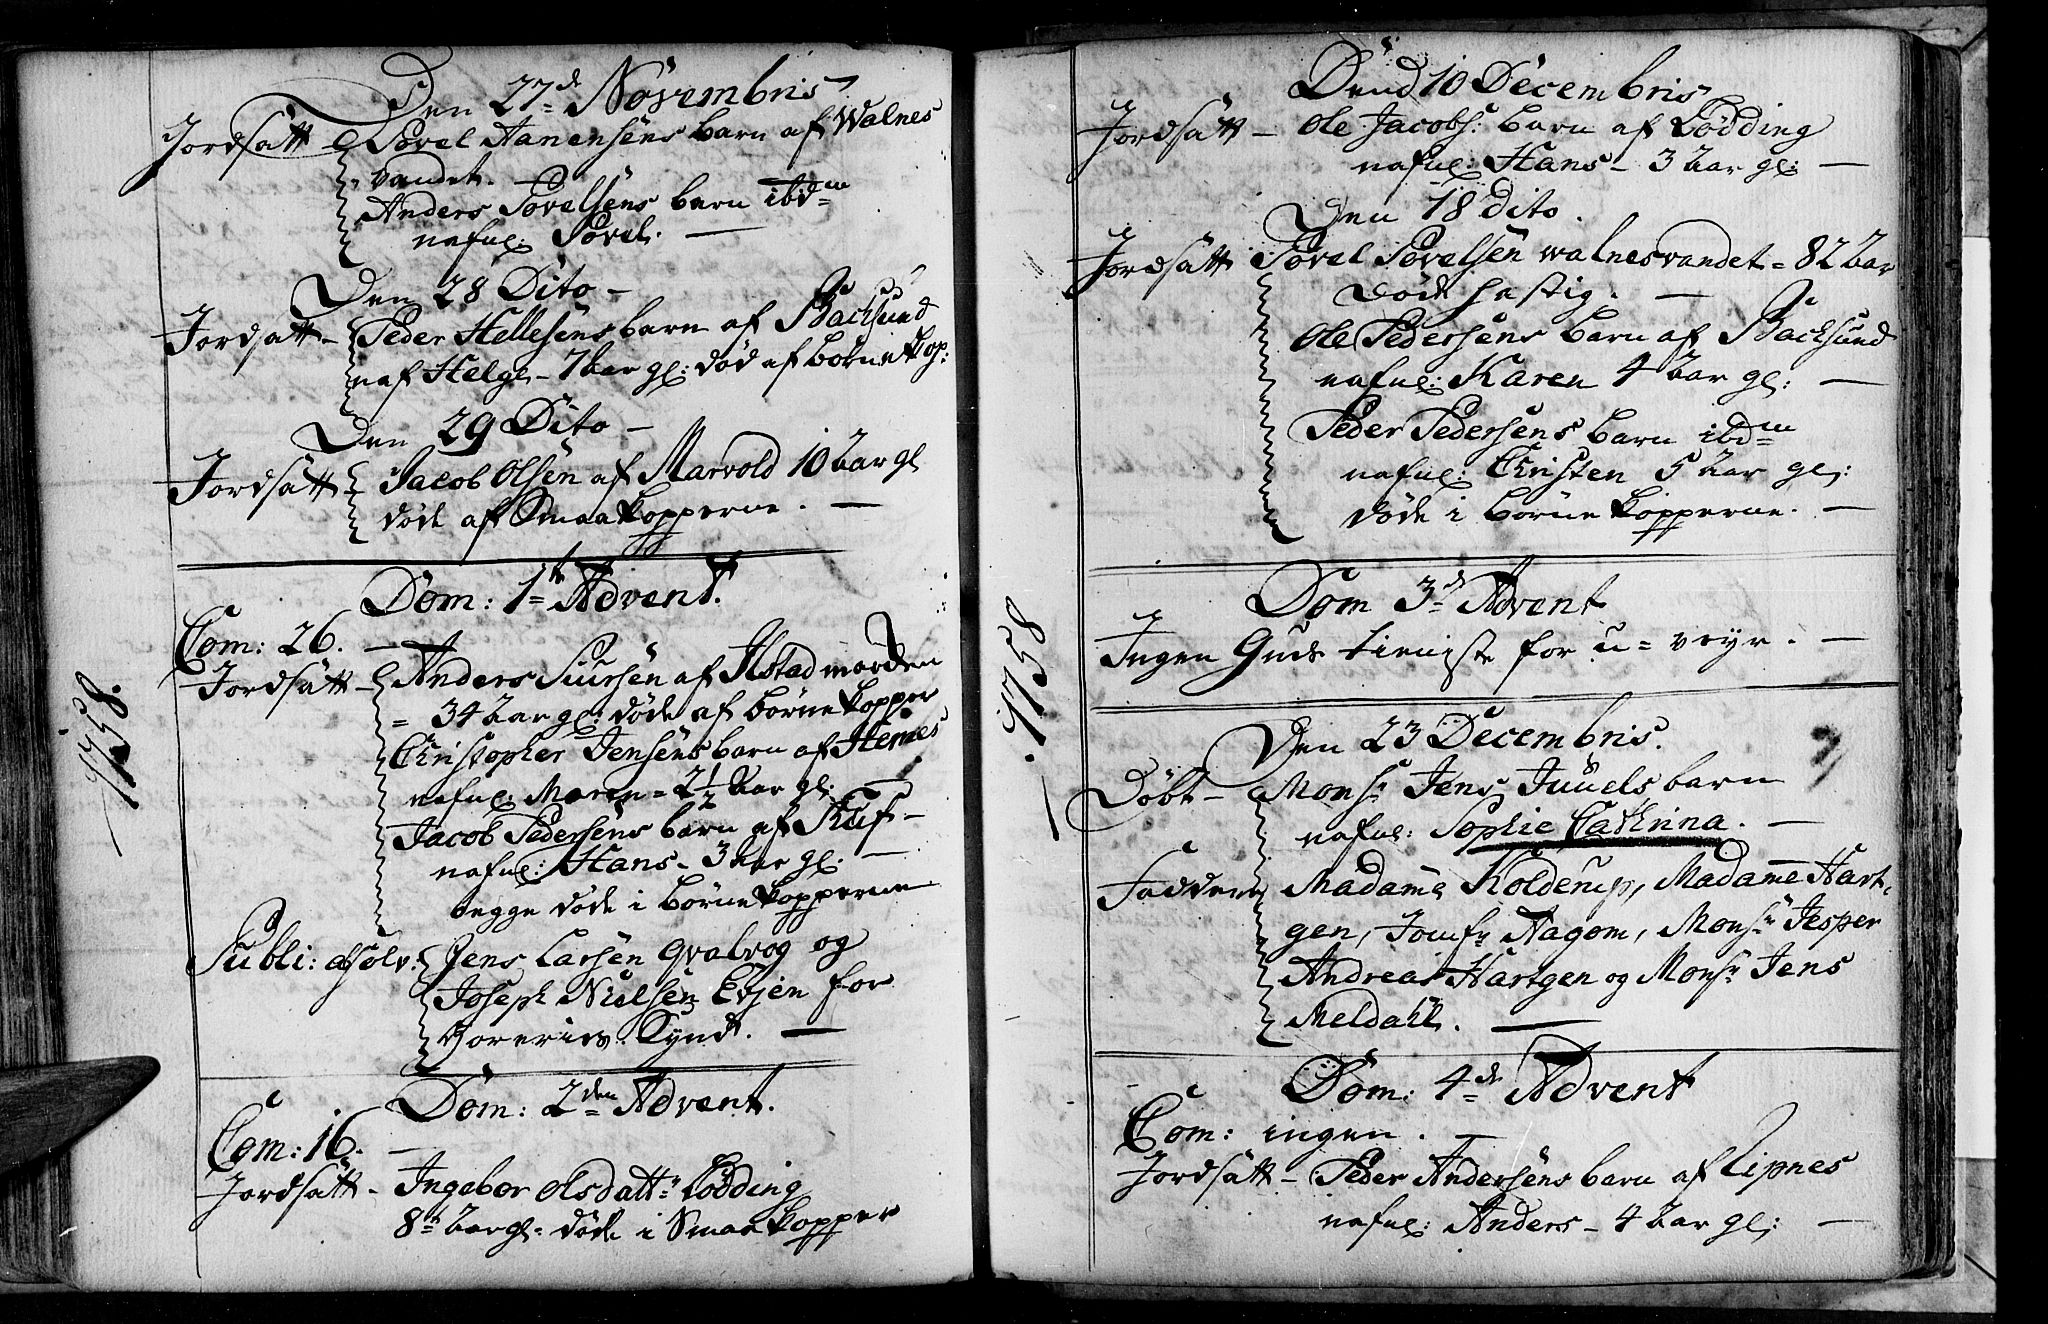 1758.
Den 27de Novembris
Jordsatt Povel Hanensens barn af Walnes
vandet.
Anders Povelsens barn ibdm
nafnl: Povel. —
Den 28 Dito —
Jordsatt — Peder Hellesens barn af Backsund
naf Helge — 7 Aar gl: død af børnekop:
Den 29 Dito —
Jordsatt — Jacob Olsen af Marvold 10 Aar gl
døde af Smaakopperne. —
Dom: 1te Advent.
Com: 26. —
Jordsatt — Anders Siursen af Ilstad marcken
= 34 Aar gl: døde af børnekopper
Christopher Jensens barn af Hernes
nafnl: Maren = 2 1/2 Aar gl:
Jacob Pedersens barn af Kuf —
nafnl: Hans — 3 Aar gl. —
begge døde i børnekopperne
Publi: absolv: Jens Larsen Qvalvog og
Joseph Nielsen Evjen for
Horeries Synd. —
Dom: 2den Advent.
Com: 16. —
Jordsatt — Ingebor Olsdattr Lødding
8te Aar gl. døde i Smaakopper
1758
Dend 10 Decembris
Jordsatt — Ole Jacobs: barn af Lødding
nafnl: Hans — 3 Aar gl: —
Den 18 dito.
Jordsatt Povel Povelsen walnesvandet = 82 Aar
døde hastig. —
Ole Pedersens barn af Backsund
nafnl: Karen 4 Aar gl: —
Peder Pedersens barn ibdm
nafnl: Christen 5 Aar gl:
døde i børnekopperne. —
Dom 3de Advent
Ingen Guds tieniste for u = veyr. —
Den 23 Decembris.
Døbt — Monsr Jens Juuels barn
nafnl: Sophie Cathrina. —
Faddere Madame Kolderup, Madame Hart-
gen, Jomfr Aagom, Monsr Jesper
Andreas Hartgen og Monsr Jens
Meldahl. —
Dom: 4de Advent
Com: ingen. —
Jordsatt — Peder Andersens barn af Lipnes
nafnl: Anders — 4 Aar gl: —